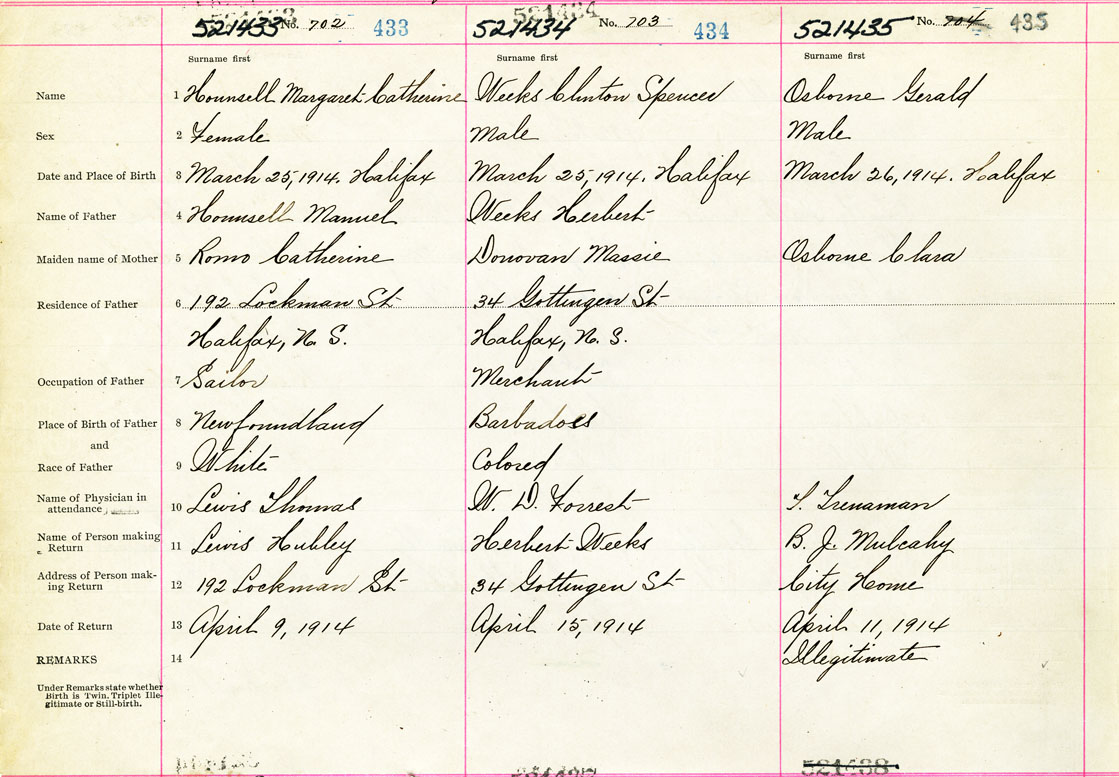 521433 No. 702 433 521434 No. 703 434 521435 No. 704 435
Surname first Surname first Surname first
Name 1 Hounsell Margaret Catherine Weeks Clinton Spencer Osborne Gerald
Sex 2 Female Male Male
Date and Place of Birth 3 March 25, 1914. Halifax March 25, 1914. Halifax March 26, 1914. Halifax
Name of Father 4 Hounsell Manuel Weeks Herbert
Maiden name of Mother 5 Romo Catherine Donovan Massie Osborne Clara
Residence of Father 6 192 Lockman St 34 Gottingen St
Halifax, N. S. Halifax, N. S.
Occupation of Father 7 Sailor Merchant
Place of Birth of Father 8 Newfoundland Barbadoes
and
Race of Father 9 White Colored
Name of Physician in
attendance 10 Lewis Thomas W. D. Forrest T. Trenaman
Name of Person making
Return 11 Lewis Hubley Herbert Weeks B. J. Mulcahy
Address of Person mak-
ing Return 12 192 Lockman St 34 Gottingen St City Home
Date of Return 13 April 9, 1914 April 15, 1914 April 11, 1914
REMARKS 14 Illegitimate
Under Remarks state whether
Birth is Twin, Triplet Ille-
gitimate or Still-birth.
521438